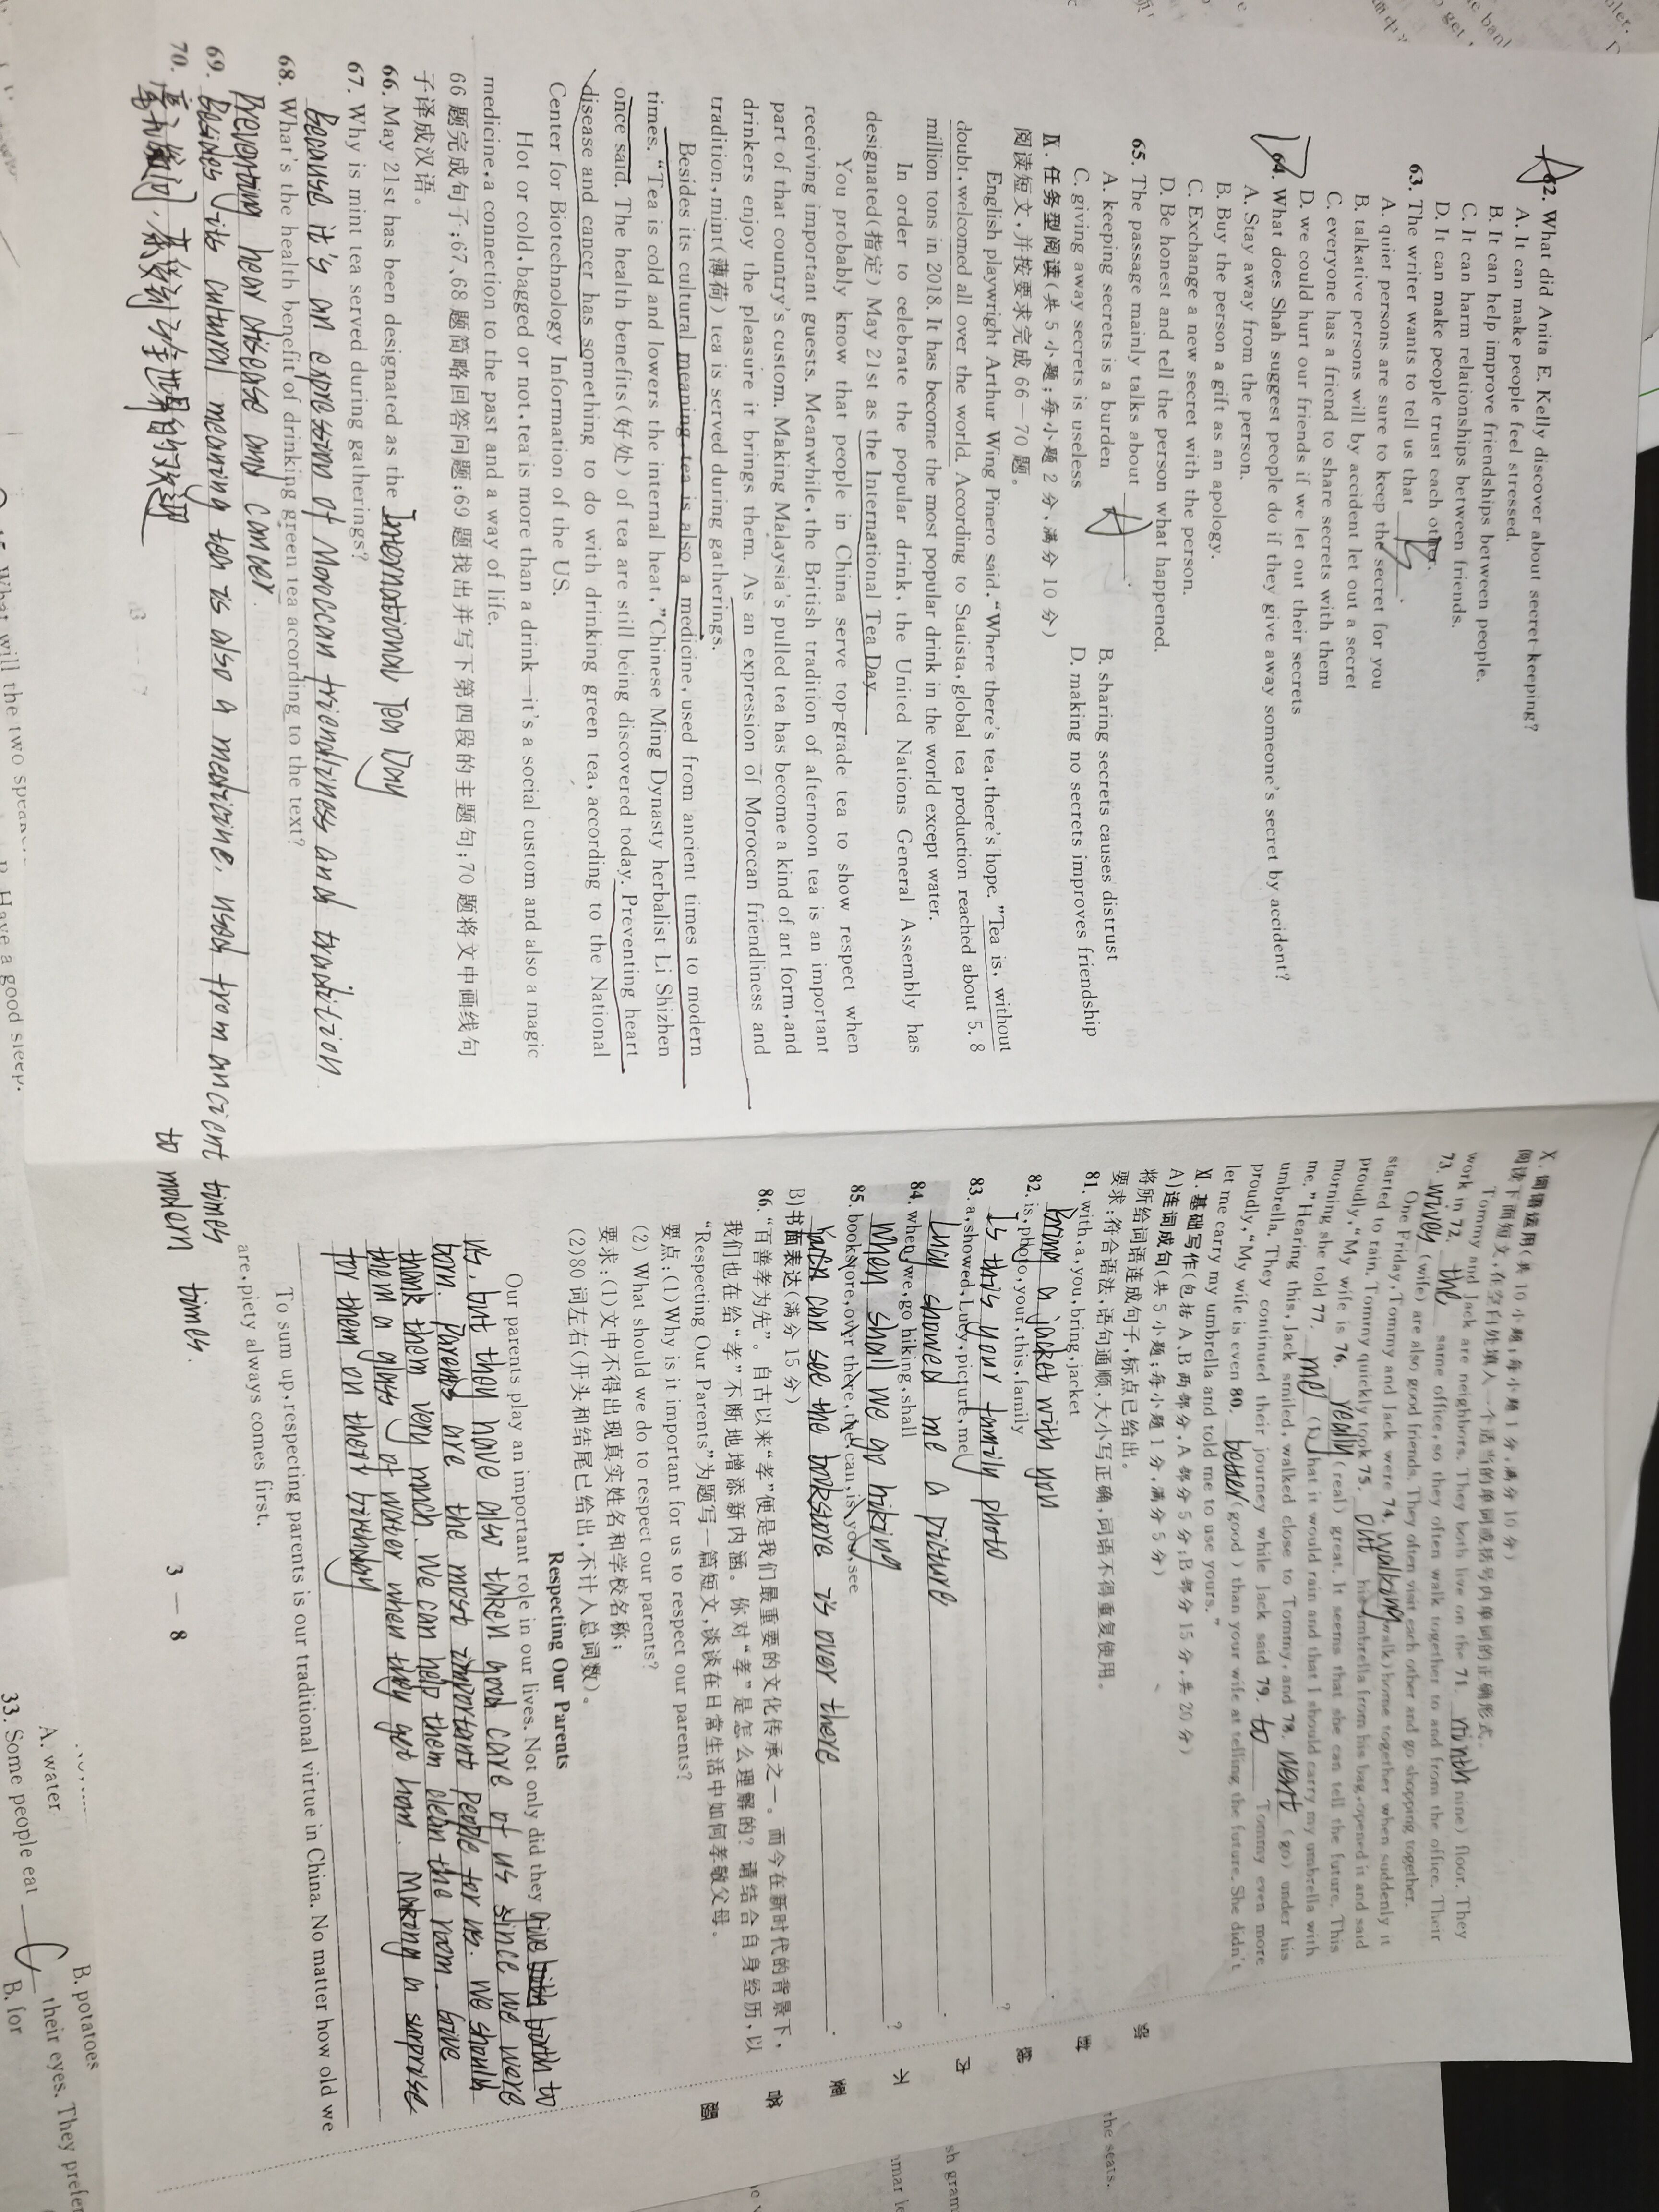 62. What did Anita E. Kelly discover about secret-keeping?
A. It can make people feel stressed.
B. It can help improve friendships between people.
C. It can harm relationships between friends.
D. It can make people trust each other.
63. The writer wants to tell us that B.
A. quiet persons are sure to keep the secret for you
B. talkative persons will by accident let out a secret
C. everyone has a friend to share secrets with them
D. we could hurt our friends if we let out their secrets
64. What does Shah suggest people do if they give away someone's secret by accident?
A. Stay away from the person.
B. Buy the person a gift as an apology.
C. Exchange a new secret with the person.
D. Be honest and tell the person what happened.
65. The passage mainly talks about A.
A. keeping secrets is a burden B. sharing secrets causes distrust
C. giving away secrets is useless D. making no secrets improves friendship
Ⅸ. 任务型阅读(共 5 小题;每小题 2 分,满分 10 分)
阅读短文,并按要求完成 66—70 题。
English playwright Arthur Wing Pinero said, "Where there's tea, there's hope." Tea is, without
doubt, welcomed all over the world. According to Statista, global tea production reached about 5.8
million tons in 2018. It has become the most popular drink in the world except water.
In order to celebrate the popular drink, the United Nations General Assembly has
designated(指定) May 21st as the International Tea Day.
You probably know that people in China serve top-grade tea to show respect when
receiving important guests. Meanwhile, the British tradition of afternoon tea is an important
part of that country's custom. Making Malaysia's pulled tea has become a kind of art form, and
drinkers enjoy the pleasure it brings them. As an expression of Moroccan friendliness and
tradition, mint(薄荷) tea is served during gatherings.
Besides its cultural meaning, tea is also a medicine, used from ancient times to modern
times. "Tea is cold and lowers the internal heat," Chinese Ming Dynasty herbalist Li Shizhen
once said. The health benefits(好处) of tea are still being discovered today. Preventing heart
disease and cancer has something to do with drinking green tea, according to the National
Center for Biotechnology Information of the US.
Hot or cold, bagged or not, tea is more than a drink—it's a social custom and also a magic
medicine, a connection to the past and a way of life.
66 题完成句子;67、68 题简略回答问题;69 题找出并写下第四段的主题句;70 题将文中画线句
子译成汉语。
66. May 21st has been designated as the International Tea Day
67. Why is mint tea served during gatherings?
Because it's an expression of Moroccan friendliness and tradition.
68. What's the health benefit of drinking green tea according to the text?
Preventing hear disease and canser.
69. Besides its cultural meaning tea is also a medicine, used from ancient times
to modern times.
70. 毫无疑问,茶受到了全世界的欢迎
Ⅹ. 词语运用(共 10 小题;每小题 1 分,满分 10 分)
阅读下面短文,在空白处填入一个适当的单词或括号内单词的正确形式。
Tommy and Jack are neighbors. They both live on the 71. ninth (nine) floor. They
work in 72. the same office, so they often walk together to and from the office. Their
73. wives (wife) are also good friends. They often visit each other and go shopping together.
One Friday, Tommy and Jack were 74. walking (walk) home together when suddenly it
started to rain. Tommy quickly took 75. out his umbrella from his bag, opened it and said
proudly, "My wife is 76. really (real) great. It seems that she can tell the future. This
morning she told 77. me (I) that it would rain and that I should carry my umbrella with
me." Hearing this, Jack smiled, walked close to Tommy, and 78. went (go) under his
umbrella. They continued their journey while Jack said 79. to Tommy even more
proudly, "My wife is even 80. better (good) than your wife at telling the future. She didn't
let me carry my umbrella and told me to use yours."
Ⅺ. 基础写作(包括 A、B 两部分,A 部分 5 分;B 部分 15 分,共 20 分)
A)连词成句(共 5 小题;每小题 1 分,满分 5 分)
将所给词语连成句子,标点已给出。
要求:符合语法,语句通顺,大小写正确,词语不得重复使用。
81. with, a, you, bring, jacket
Bring a jacket with you.
82. is, photo, your, this, family
Is this your family photo?
83. a, showed, Lucy, picture, me
Lucy showed me a picture.
84. when, we, go hiking, shall
When shall we go hiking?
85. bookstore, over there, the, can, is, you, see
can see the bookstore is over there.
B)书面表达(满分 15 分)
86. "百善孝为先"。自古以来"孝"便是我们最重要的文化传承之一。而今在新时代的背景下,
我们也在给"孝"不断地增添新内涵。你对"孝"是怎么理解的?请结合自身经历,以
"Respecting Our Parents"为题写一篇短文,谈谈在日常生活中如何孝敬父母。
要点:(1)Why is it important for us to respect our parents?
(2) What should we do to respect our parents?
要求:(1)文中不得出现真实姓名和学校名称;
(2)80 词左右(开头和结尾已给出,不计入总词数)。
Respecting Our Parents
Our parents play an important role in our lives. Not only did they give birth to
us, but they have also taken good care of us since we were
born. Parents are the most important people for us. We should
thank them very much. We can help them clean the room. Give
them a glass of water when they get hom. Making a surprise
for them on their birthday
To sum up, respecting parents is our traditional virtue in China. No matter how old we
are, piety always comes first.
3 — 8
33. Some people eat C their eyes. They prefer
A. water B. potatoes
B. for
will the two
Have a good sleep.
the seats.